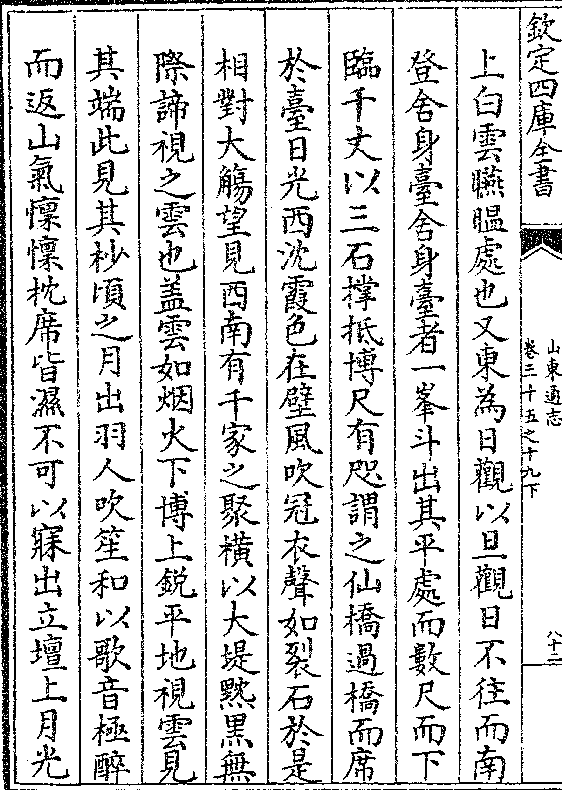 欽定四庫全書
山東通志
卷三十五之十九下
八十二
上白雲曣㬈處也又東為日觀以旦觀日不往而南
登舍身臺舍身臺者一峯斗出其平處而數尺而下
臨千丈以三石撐抵博尺有咫謂之仙橋過橋而席
於臺日光西沈霞色在壁風吹冠衣聲如裂石於是
相對大觴望見西南有千家之聚橫以大堤黙黒無
際諦視之雲也盖雲如烟火下博上銳平地視雲見
其端此見其杪頃之月出羽人吹笙和以歌音極醉
而返山氣懍懍枕席皆濕不可以寐出立壇上月光